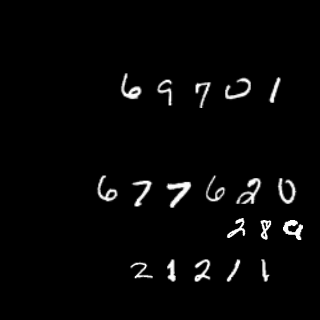 69701
677620
289
21211